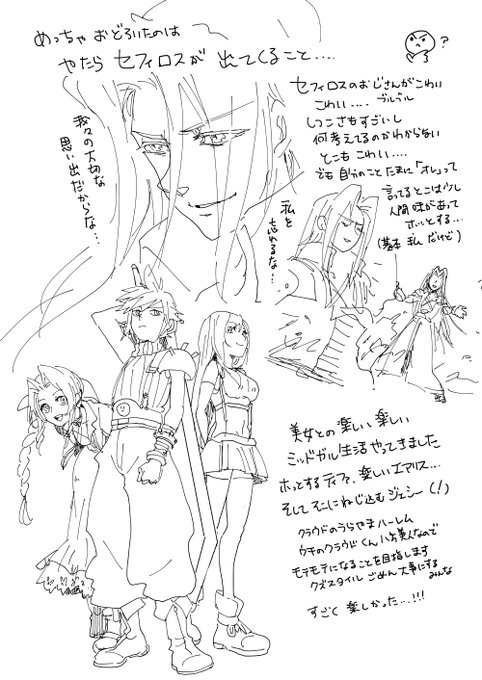 めっちゃおどろいたのは
やたらセフィロスが出てくること…。
?
セフィロスのおじさんがこわい
こわい…。ブルブル
しつこさもすごいし
何考えてるのかわからない
とこもこわい…。
でも自分のことたまに「オレ」って
言ってるとこは少し
人間味があって
ホッとする…
(基本 私 だけど)
我々の大切な
思い出だからな…
私を
忘れるな…
美女との楽しい、楽しい
ミッドガル生活やってきました
ホッとするティファ、楽しいエアリス…
そしてそこにねじ込むジェシー(!)
クラウドのうらやまハーレム
ウチのクラウドくんハお美人なので
モテモテになることを目指します
クズスタイルごめん大事にする
みんな
すごく楽しかった…!!!